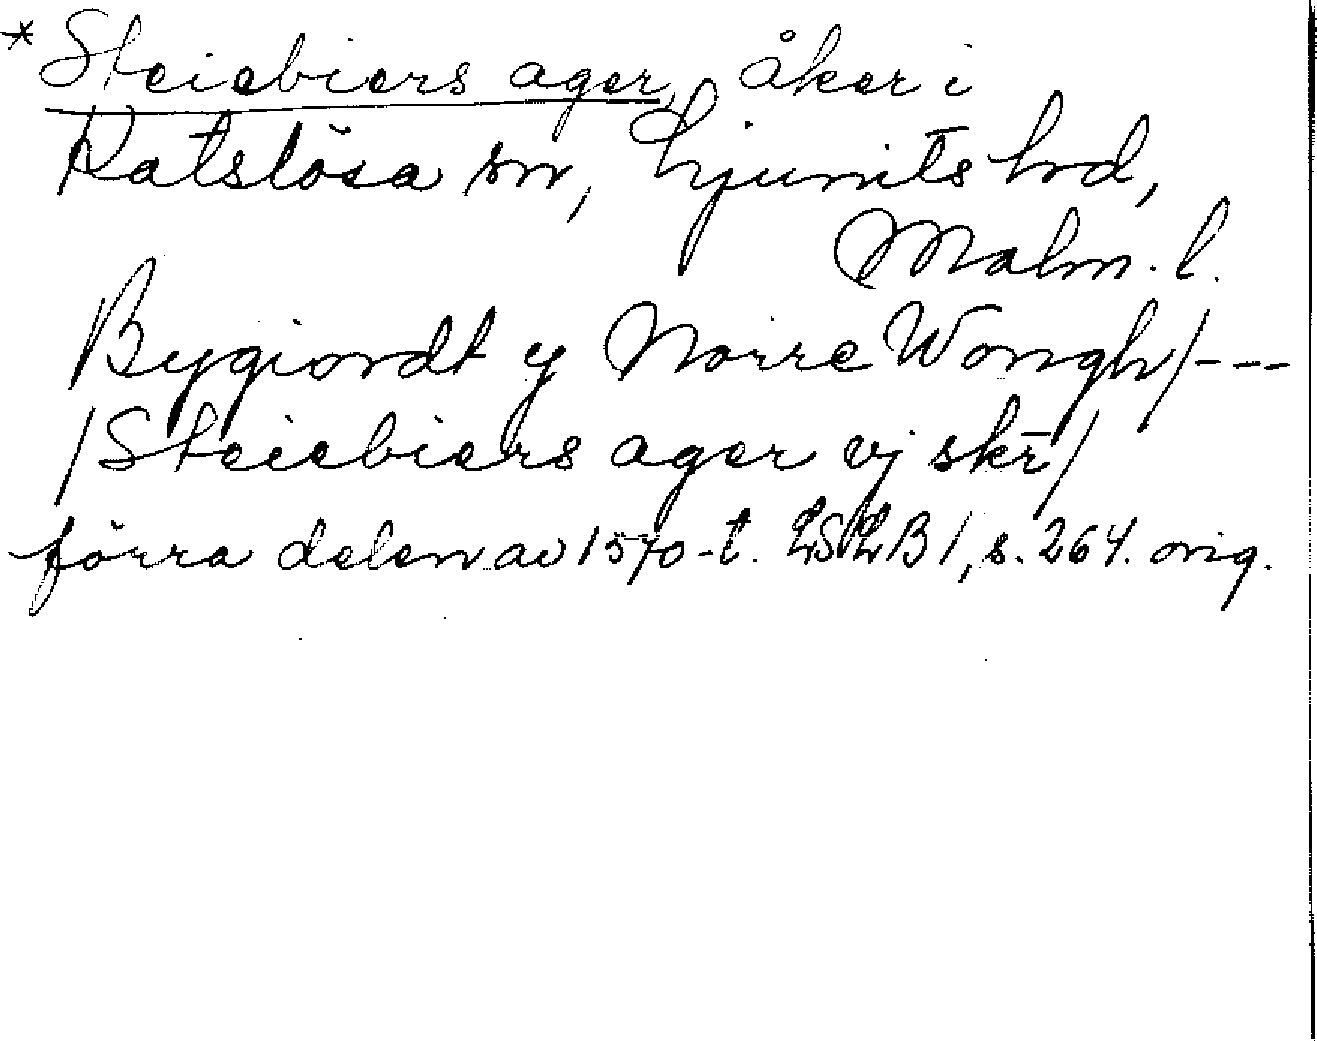 * Steiebiers ager, åker i
Katslösa sn, Ljunits hd,
Malm. l.
Bygiordt y Norre Wongh/---
/Steiebiers ager vj skr̄/
förra delen av 1570-t. LSLB 1, s. 264. orig.